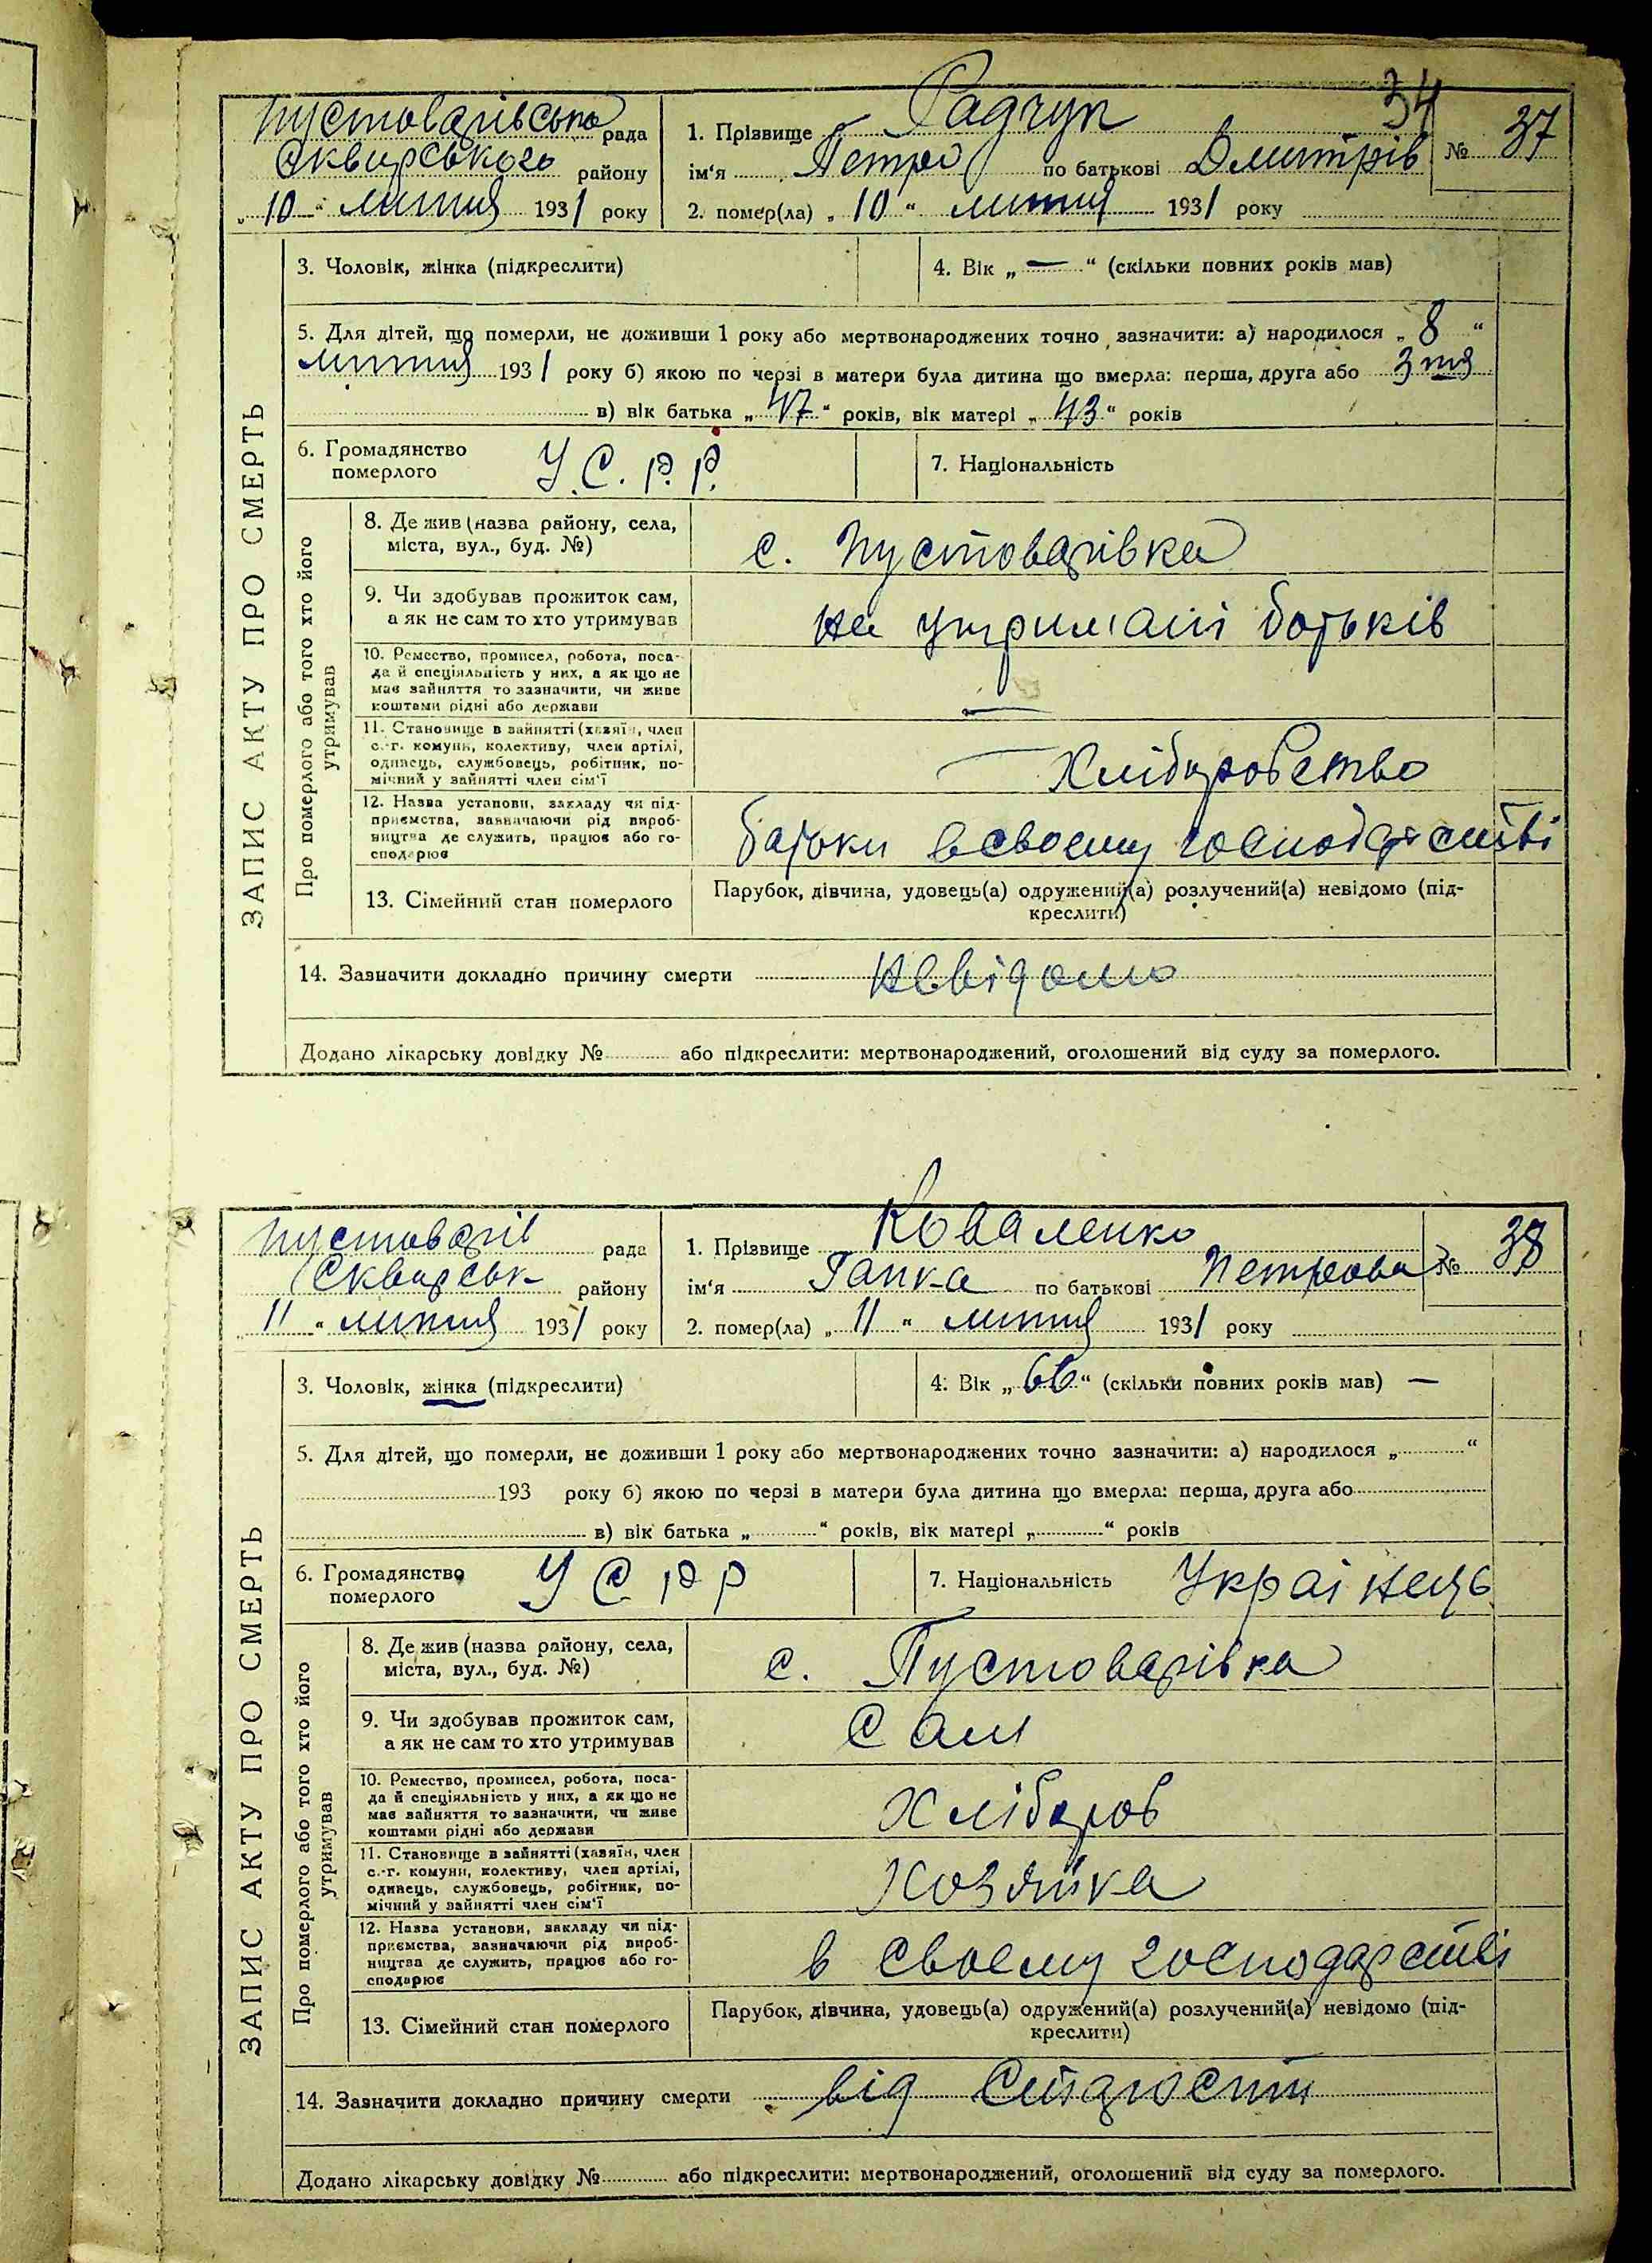 34
Пустоварівська рада
Сквирського району
„10“ липня 1931 року
1. Прізвище Радчук
ім'я Петро по батькові Дмитрів
№ 37
2. помер(ла) „10“ липня 1931 року
ЗАПИС АКТУ ПРО СМЕРТЬ
3. Чоловік, жінка (підкреслити)
4. Вік „—“ (скільки повних років мав)
5. Для дітей, що померли, не доживши 1 року або мертвонароджених точно зазначити: а) народилося „8“
липня 1931 року б) якою по черзі в матери була дитина що вмерла: перша, друга або 3тя
в) вік батька „47“ років, вік матері „43“ років
6. Громадянство померлого У.С.Р.Р.
7. Національність
Про померлого або того хто його утримував
8. Де жив (назва району, села,
міста, вул., буд. №)
с. Пустоварівка
9. Чи здобував прожиток сам,
а як не сам то хто утримував
на утримані батьків
10. Ремество, промисел, робота, поса-
да й спеціяльність у них, а як що не
має зайняття то зазначити, чи живе
коштами рідні або держави
—
11. Становище в зайнятті (хазяїн, член
с.-г. комуни, колективу, член артілі,
одинець, службовець, робітник, по-
мічний у зайнятті член сім'ї
— Хліборобство
12. Назва установи, закладу чи під-
приємства, зазначаючи рід вироб-
ництва де служить, працює або го-
сподарює
батьки в своему господарстві
13. Сімейний стан померлого
Парубок, дівчина, удовець(а) одружений(а) розлучений(а) невідомо (під-
креслити)
14. Зазначити докладно причину смерти невідомо
Додано лікарську довідку № або підкреслити: мертвонароджений, оголошений від суду за померлого.
Пустоварів рада
Сквирськ району
„11“ липня 1931 року
1. Прізвище Коваленко
ім'я Гапка по батькові Петрова
№ 38
2. помер(ла) „11“ липня 1931 року
ЗАПИС АКТУ ПРО СМЕРТЬ
3. Чоловік, жінка (підкреслити)
4. Вік „66“ (скільки повних років мав) —
5. Для дітей, що померли, не доживши 1 року або мертвонароджених точно зазначити: а) народилося „ “
193 року б) якою по черзі в матери була дитина що вмерла: перша, друга або
в) вік батька „ “ років, вік матері „ “ років
6. Громадянство померлого УСРР
7. Національність Українець
Про померлого або того хто його утримував
8. Де жив (назва району, села,
міста, вул., буд. №)
с. Пустоварівка
9. Чи здобував прожиток сам,
а як не сам то хто утримував
Сам
10. Ремество, промисел, робота, поса-
да й спеціяльність у них, а як що не
має зайняття то зазначити, чи живе
коштами рідні або держави
Хлібороб
11. Становище в зайнятті (хазяїн, член
с.-г. комуни, колективу, член артілі,
одинець, службовець, робітник, по-
мічний у зайнятті член сім'ї
Хозяйка
12. Назва установи, закладу чи під-
приємства, зазначаючи рід вироб-
ництва де служить, працює або го-
сподарює
в своему господарстві
13. Сімейний стан померлого
Парубок, дівчина, удовець(а) одружений(а) розлучений(а) невідомо (під-
креслити)
14. Зазначити докладно причину смерти від старости
Додано лікарську довідку № або підкреслити: мертвонароджений, оголошений від суду за померлого.